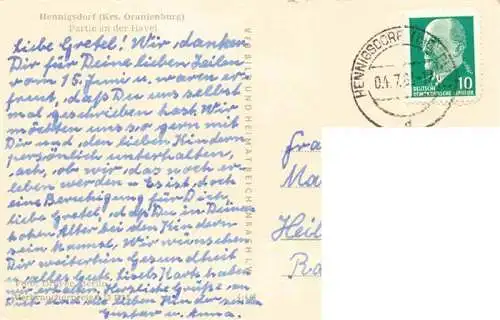 Hennigsdorf (Krs. Oranienburg)
Partie an der Havel
Liebe Gretel! Wir danken
Dir für Deine lieben Zeilen
vom 15. Juni u. waren er-
freut, daß Du uns selbst
mal geschrieben hast. Wir
möchten uns so gern mit
Dir und den lieben Kindern
persönlich unterhalten,
ach, ob wir das noch er-
leben werden – Es ist doch
eine Beruhigung für Dich
liebe Gretel, daß Du in Deinem
hohen Alter bei den Kindern
sein kannst. Wir wünschen
Dir weiterhin Gesundheit
u. alles Gute. Lisels Karte haben
wir erhalten. Herzliche Grüße an
Dich und die lieben Kinder senden
Gustav u. Anna.
Foto: Berlin
Verbraucherpreis
VEB BILD UND HEIMAT REICHENBACH I. V.
HENNIGSDORF
04.7.6
d
10
DEUTSCHE
DEMOKRATISCHE REPUBLIK
Fra
Ma
Heil
Ra